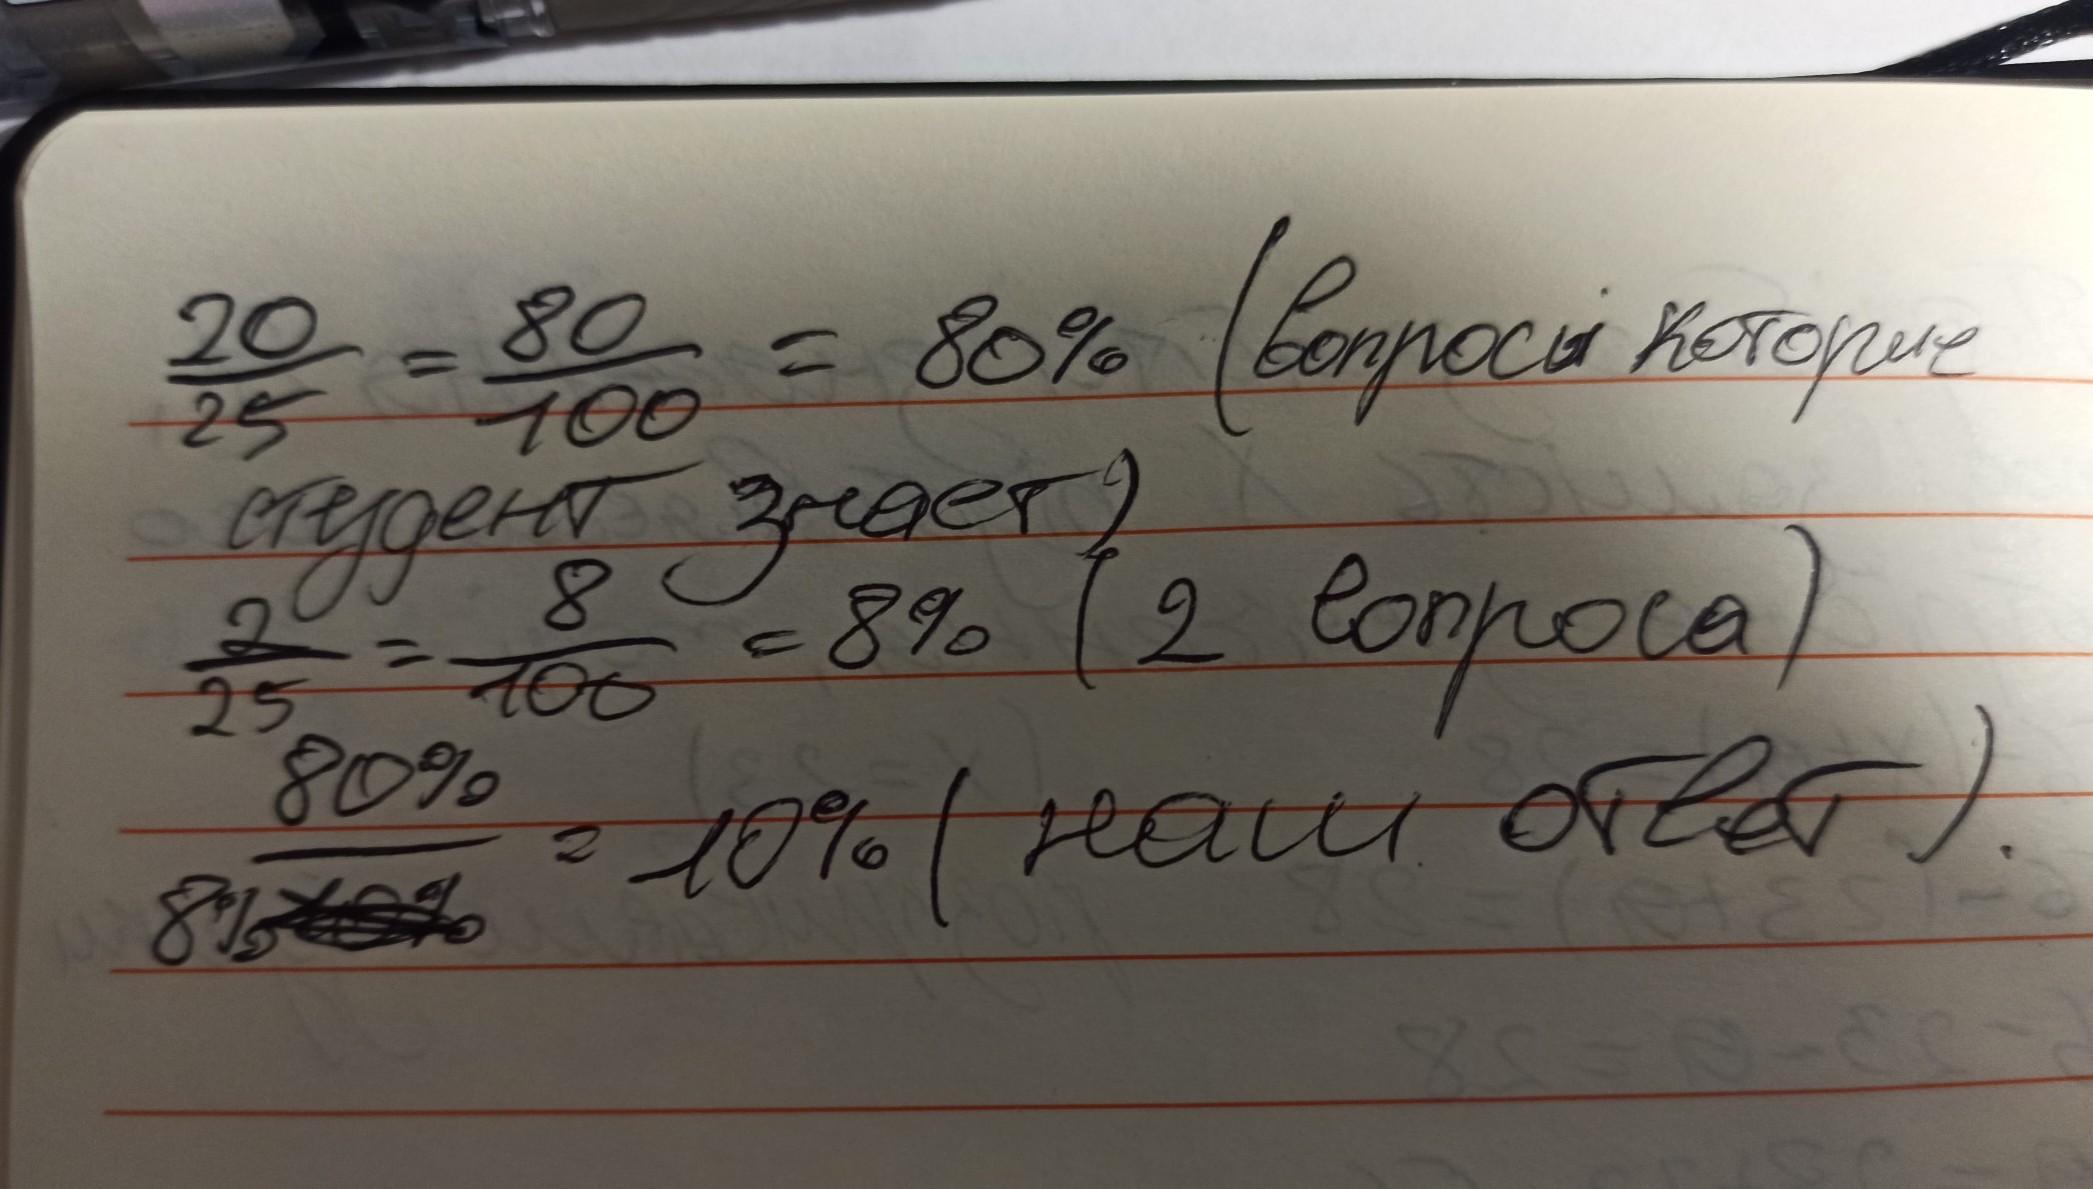 20/25 = 80/100 = 80% (вопросы которые
студент знает)
2/25 = 8/100 = 8% (2 вопроса)
80%/8% = 10% (наш ответ).